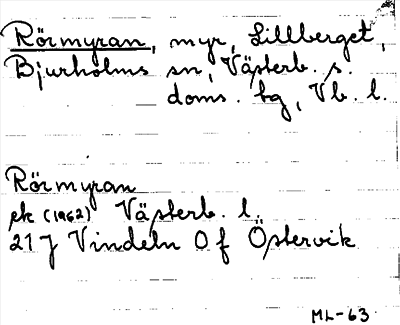 Rörmyran, myr, Lillberget,
Bjurholms sn, Västerb. s.
doms. bg, Vb. l.
Rörmyran
ek (1962) Västerb. l.
21 J Vindeln 0 f Östervik
ML-63